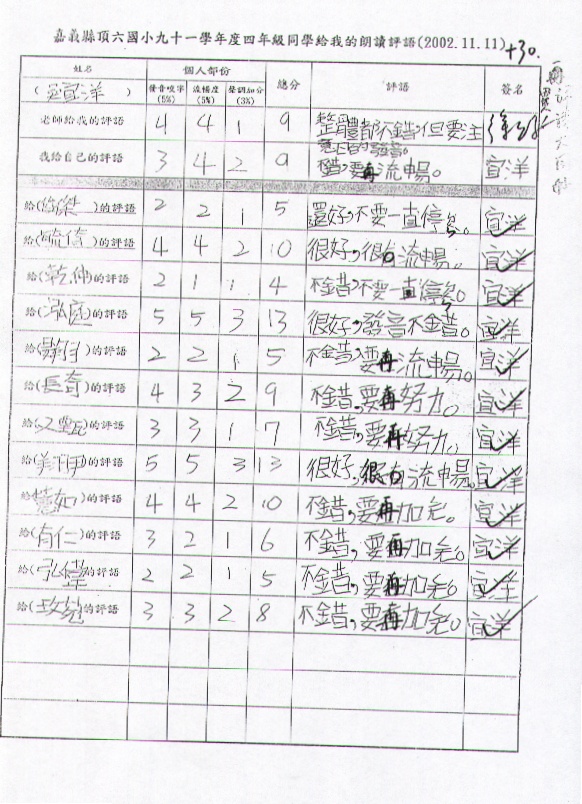 嘉義縣頂六國小九十一學年度四年級同學給我的朗讀評語(2002.11.11) +30.
姓名 個人部份 總分 評語 簽名
(宜洋) 聲音咬字(5%) 流暢度(5%) 聲調加分(3%)
老師給我的評語 4 4 1 9 整體都不錯,但要注
意字的發音。
我給自己的評語 3 4 2 9 不錯,要再流暢。 宜洋
給(俊傑)的評語 2 2 1 5 還好,不要一直停。 宜洋
給( )的評語 4 4 2 10 很好,很有流暢。 宜洋
給(乾坤)的評語 2 1 1 4 不錯,不要一直停。 宜洋
給(泓庭)的評語 5 5 3 13 很好,發音不錯。 宜洋
給( )的評語 2 2 1 5 不錯,要再流暢。 宜洋
給(長奇)的評語 4 3 2 9 不錯,要再努力。 宜洋
給( )的評語 3 3 1 7 不錯,要再努力。 宜洋
給( )的評語 5 5 3 13 很好,很有流暢。 宜洋
給(慧如)的評語 4 4 2 10 不錯,要再加油。 宜洋
給(有仁)的評語 3 2 1 6 不錯,要再加油。 宜洋
給(弘偉)的評語 2 2 1 5 不錯,要再加油。 宜洋
給( )的評語 3 3 2 8 不錯,要再加油。 宜洋